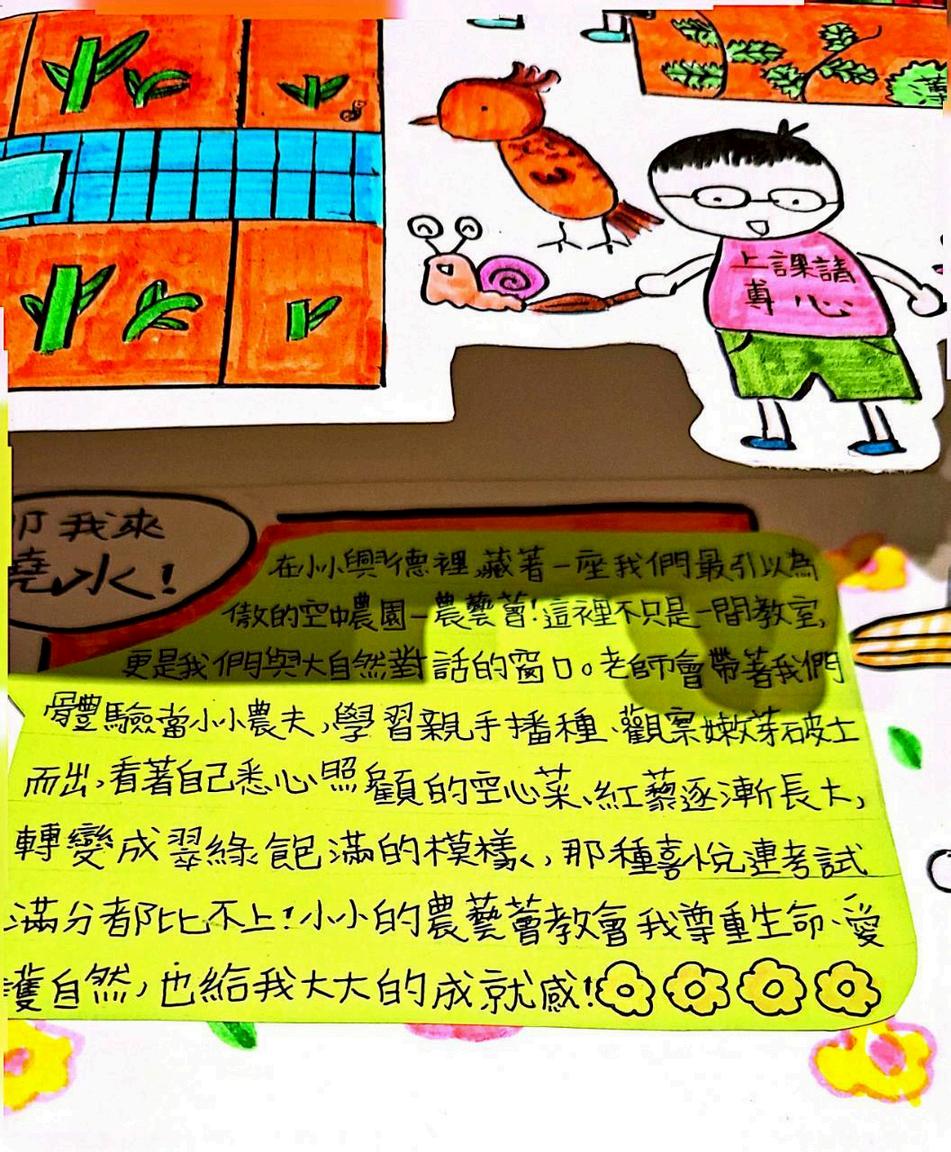 上課請
專心
我來
澆水!
在小小興德裡,藏著一座我們最引以為
傲的空中農園—農藝薈!這裡不只是一間教室,
更是我們與大自然對話的窗口。老師會帶著我們
體驗當小小農夫,學習親手播種、觀察嫩芽破土
而出,看著自己悉心照顧的空心菜、紅藜逐漸長大,
轉變成翠綠飽滿的模樣,那種喜悅連考試
滿分都比不上!小小的農藝薈教會我尊重生命、愛
護自然,也給我大大的成就感!